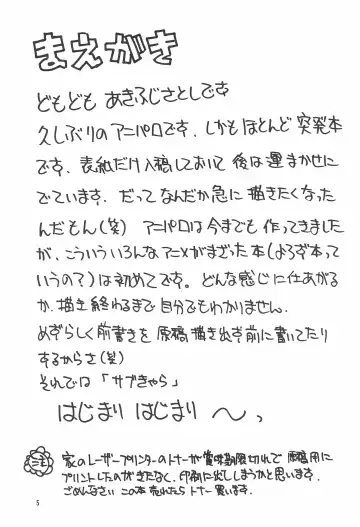 まえがき
どもども あきふじさとしです
久しぶりのアニパロです、しかもほとんど突発本
です、表紙だけ入稿しておいて後は運まかせに
でています、だってなんだか急に描きたくなった
んだもん(笑) アニパロは今までも作ってきました
が、こういういろんなアニメがまざった本(よろず本って
いうの?)は初めてです。どんな感じに仕あがる
か、描き終わるまで自分でもわかりません。
めずらしく前書きを原稿描き出す前に書いてたり
するからさ(笑)
それでは「サブきゃら」
はじまり はじまり 〜っ
家のレーザープリンターのトナーが賞味期限切れで原稿用に
プリントしたのがきたなく、印刷に出してしまうかと思います、
ごめんなさい この本売れたらトナー買います。
5